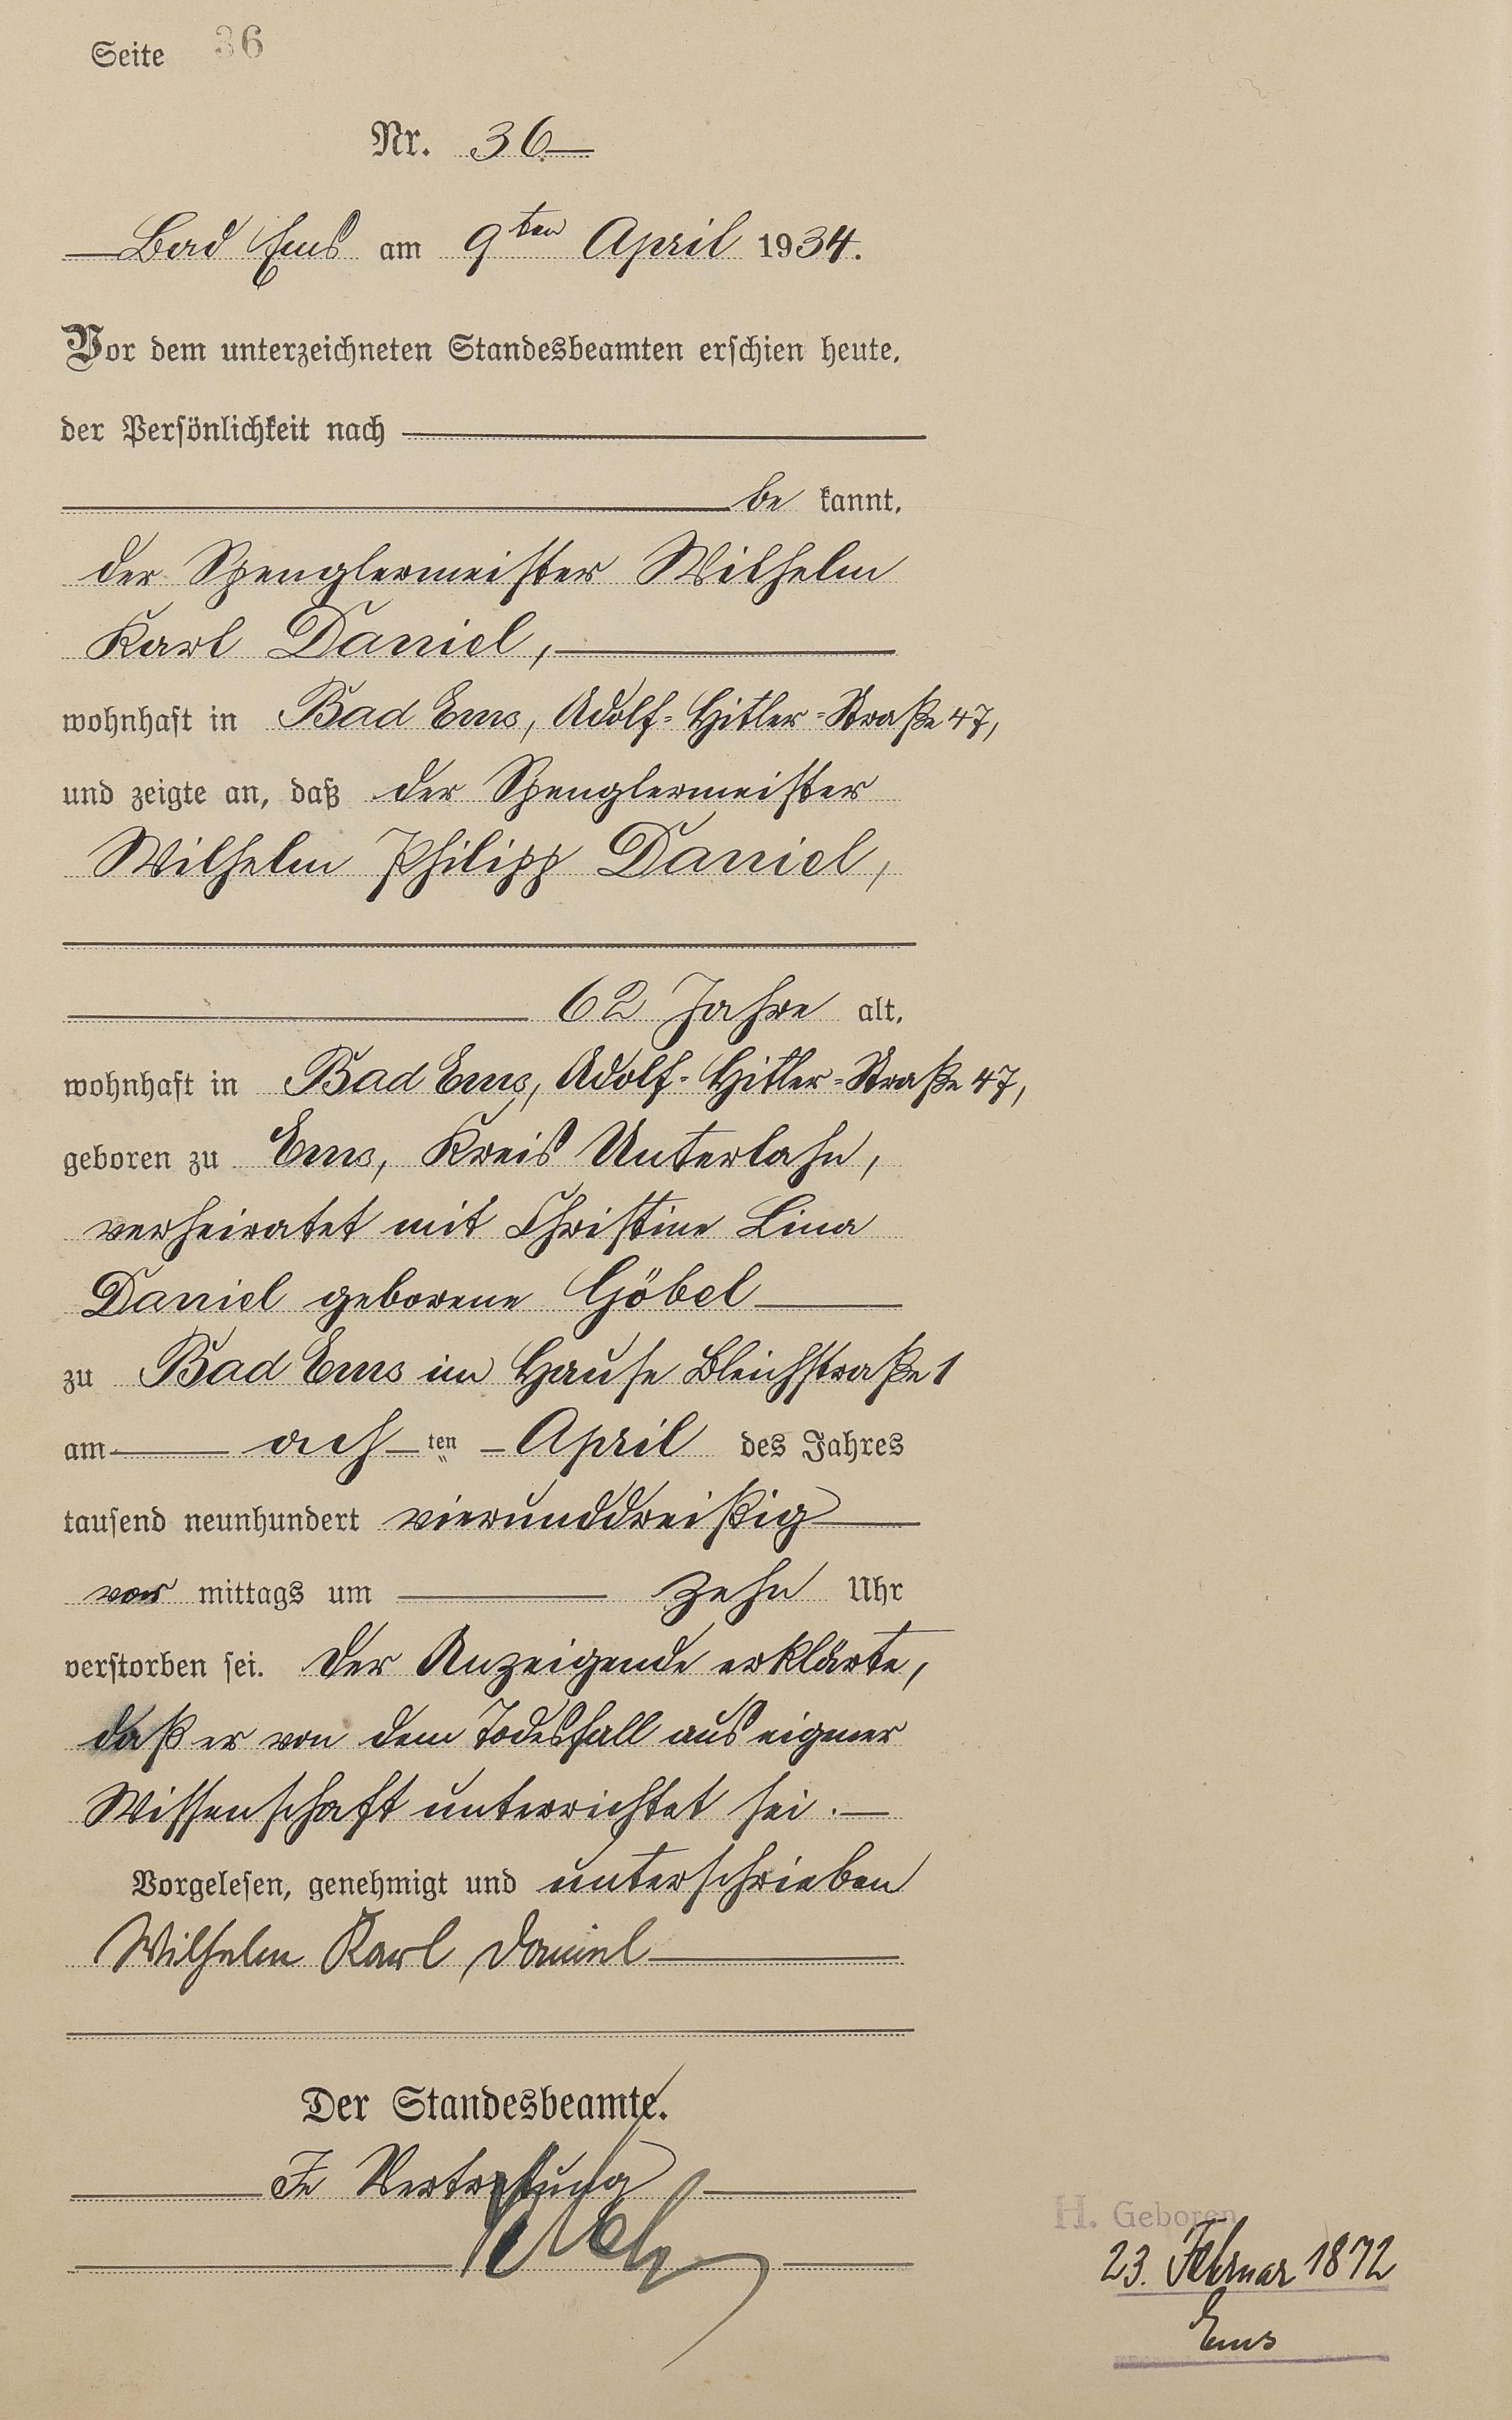 Seite 36
Nr. 36
Bad Ems am 9ten April 1934.
Vor dem unterzeichneten Standesbeamten erschien heute,
der Persönlichkeit nach
be kannt,
der Spenglermeister Wilhelm
Karl Daniel,
wohnhaft in Bad Ems, Adolf-Hitler-Straße 47,
und zeigte an, daß der Spenglermeister
Wilhelm Philipp Daniel,
62 Jahre alt,
wohnhaft in Bad Ems, Adolf-Hitler-Straße 47,
geboren zu Ems, Kreis Unterlahn,
verheiratet mit Christine Lina
Daniel geborene Göbel
zu Bad Ems im Hause Bleichstraße 1
am ach ten April des Jahres
tausend neunhundert vierunddreißig
vor mittags um zehn Uhr
verstorben sei. Der Anzeigende erklärte,
daß er von dem Todesfall aus eigener
Wissenschaft unterrichtet sei.
Vorgelesen, genehmigt und unterschrieben
Wilhelm Karl Daniel
Der Standesbeamte.
In Vertretung
H. Geboren
23. Februar 1872
Ems